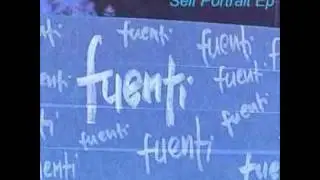 Self Portrait Ep
fuenti
fuenti
fuenti
fuenti
fuenti
fuenti
fuenti
fuenti
fuenti